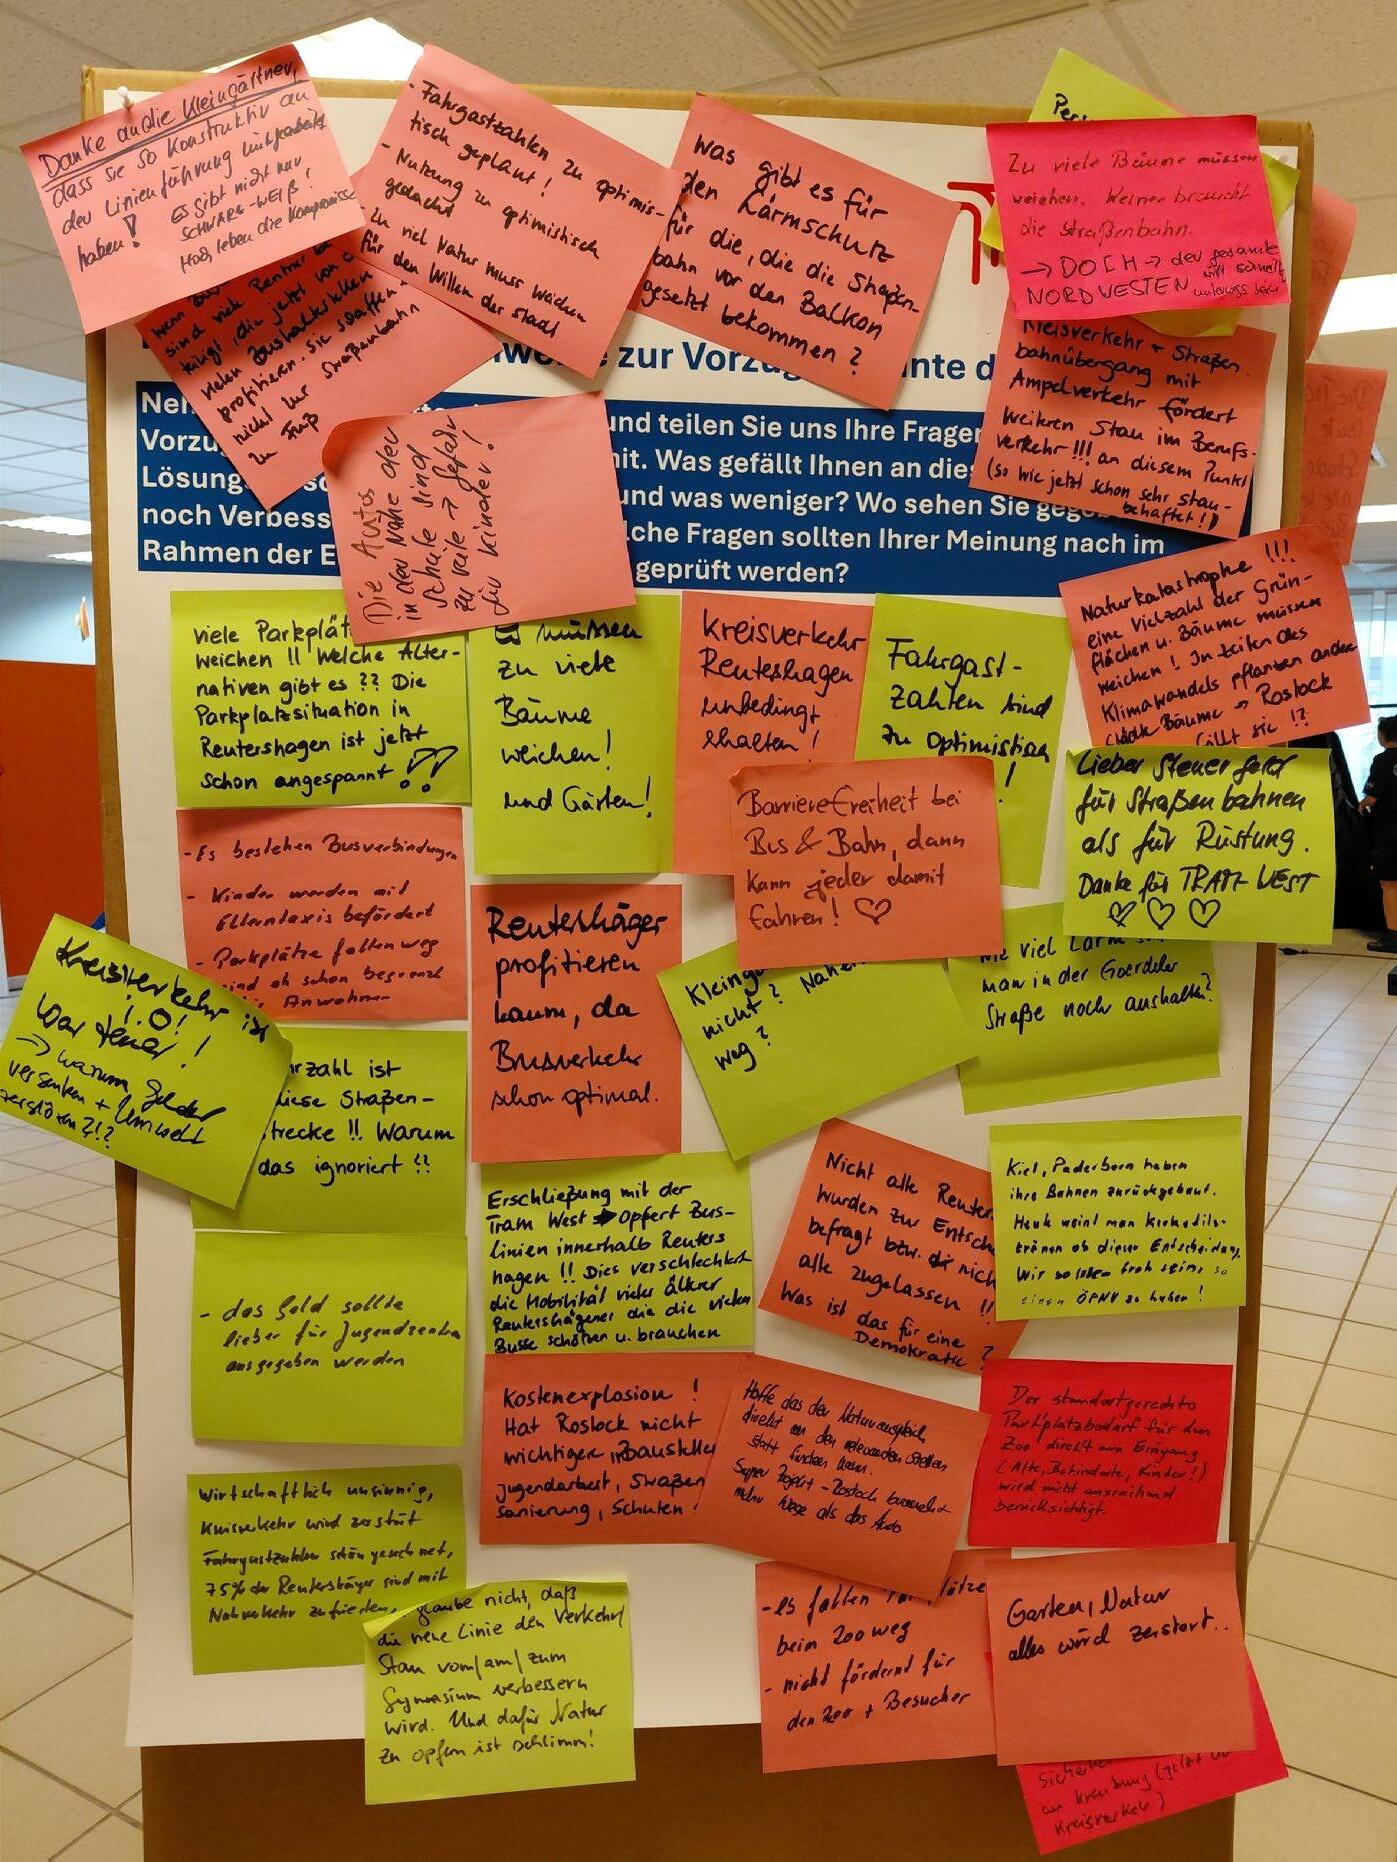 Danke an die Kleingärtner,
dass sie so konstruktiv an
der Linienführung mitgearbeitet
haben!
ES gibt nicht nur
SCHWARZ-WEIß!
Hoch leben die Kompromisse
- Fahrgastzahlen zu optimis-
tisch geplant!
- Nutzung zu optimistisch
gedacht
- zu viel Natur muss weichen
für den Willen der Stadt
Was gibt es für
den Lärmschutz
für die, die die Straßen-
bahn vor den Balkon
gesetzt bekommen?
Zu viele Bäume müssen
weichen. Keiner braucht
die Straßenbahn.
→ DOCH → der gesamte
NORDWESTEN will schnell
unterwegs sein
wenn
sind viele Rentner
die jetzt von
vielen Bushaltestellen
profitieren. Sie schaffen
nicht zur Straßenbahn
zu Fuß
zur Vorzu
Neh
und teilen Sie uns Ihre Fragen
Vorzu
mit. Was gefällt Ihnen an die
Lösung
und was weniger? Wo sehen Sie gege
noch Verbess
lche Fragen sollten Ihrer Meinung nach im
Rahmen der E
geprüft werden?
Kreisverkehr + Straßen-
bahnübergang mit
Ampelverkehr fördert
weiteren Stau im Berufs-
verkehr!!! an diesem Punkt
(so wie jetzt schon sehr stau-
behaftet!)
Die Autos
in der Nähe der
Schule sind
zu viele → Gefahr
für Kinder!
Naturkatastrophe!!!
eine Vielzahl der Grün-
flächen u. Bäume müssen
weichen! In Zeiten des
Klimawandels pflanzen andere
Städte Bäume → Rostock
fällt sie!?
viele Parkplät
weichen!! Welche Alter-
nativen gibt es?? Die
Parkplatzsituation in
Reutershagen ist jetzt
schon angespannt!!
Es müssen
zu viele
Bäume
weichen!
und Gärten!
Kreisverkehr
Reutershagen
unbedingt
erhalten!
Fahrgast-
zahlen sind
zu optimistisch
!
Lieber Steuergeld
für Straßenbahnen
als für Rüstung.
Danke für TRAM WEST
♡ ♡ ♡
Barrierefreiheit bei
Bus & Bahn, dann
kann jeder damit
fahren! ♡
- Es bestehen Busverbindungen
- Kinder werden mit
Elterntaxis befördert
- Parkplätze fallen weg
sind eh schon begrenzt
Anwohner
Reutershäger
profitieren
kaum, da
Busverkehr
schon optimal.
Kleing
nicht? Nahe
weg?
wie viel Lärm
man in der Goerdeler
Straße noch aushalten?
Kreisverkehr ist
i.O!
War teuer!
→ warum Gelder
versenken + Umwelt
zerstören?!?
rzahl ist
diese Straßen-
strecke!! Warum
das ignoriert!?
Erschließung mit der
Tram West → opfert Bus-
linien innerhalb Reuters
hagen!! Dies verschlechtert
die Mobilität vieler älterer
Reutershäger die die vielen
Busse schätzen u. brauchen
Nicht alle Reuters
wurden zur Entsch
befragt bzw. nich
alle zugelassen!!
Was ist das für eine
Demokratie?
Kiel, Paderborn haben
ihre Bahnen zurückgebaut.
Heute weint man Krokodils-
tränen ob dieser Entscheidung.
Wir sollten froh sein, so
einen ÖPNV zu haben!
- das Geld sollte
lieber für Jugendzentren
ausgegeben werden
Kostenexplosion!
Hat Rostock nicht
wichtigere Baustellen
Jugendarbeit, Straßen
sanierung, Schulen!
Hoffe das der Naturausgleich
direkt an den relevanten Stellen
statt finden kann.
Super Projekt - Rostock braucht
mehr Wege als das Auto
Der standortgerechte
Parkplatzbedarf für den
Zoo direkt am Eingang
(Alte, Behinderte, Kinder!)
wird nicht ausreichend
berücksichtigt.
Wirtschaftlich unsinnig,
Kreisverkehr wird zerstört
Fahrgastzahlen schön gerechnet,
75% der Reutershäger sind mit
Nahverkehr zufrieden.
glaube nicht, daß
die neue Linie den Verkehr/
Stau vom/am/zum
Gymnasium verbessern
wird. Und dafür Natur
zu opfern ist schlimm!
- es fallen Parkplätze
beim Zoo weg
- nicht fördernd für
den Zoo + Besucher
Garten, Natur
alles wird zerstört..
an Kreuzung (jetzt
Kreisverkehr)